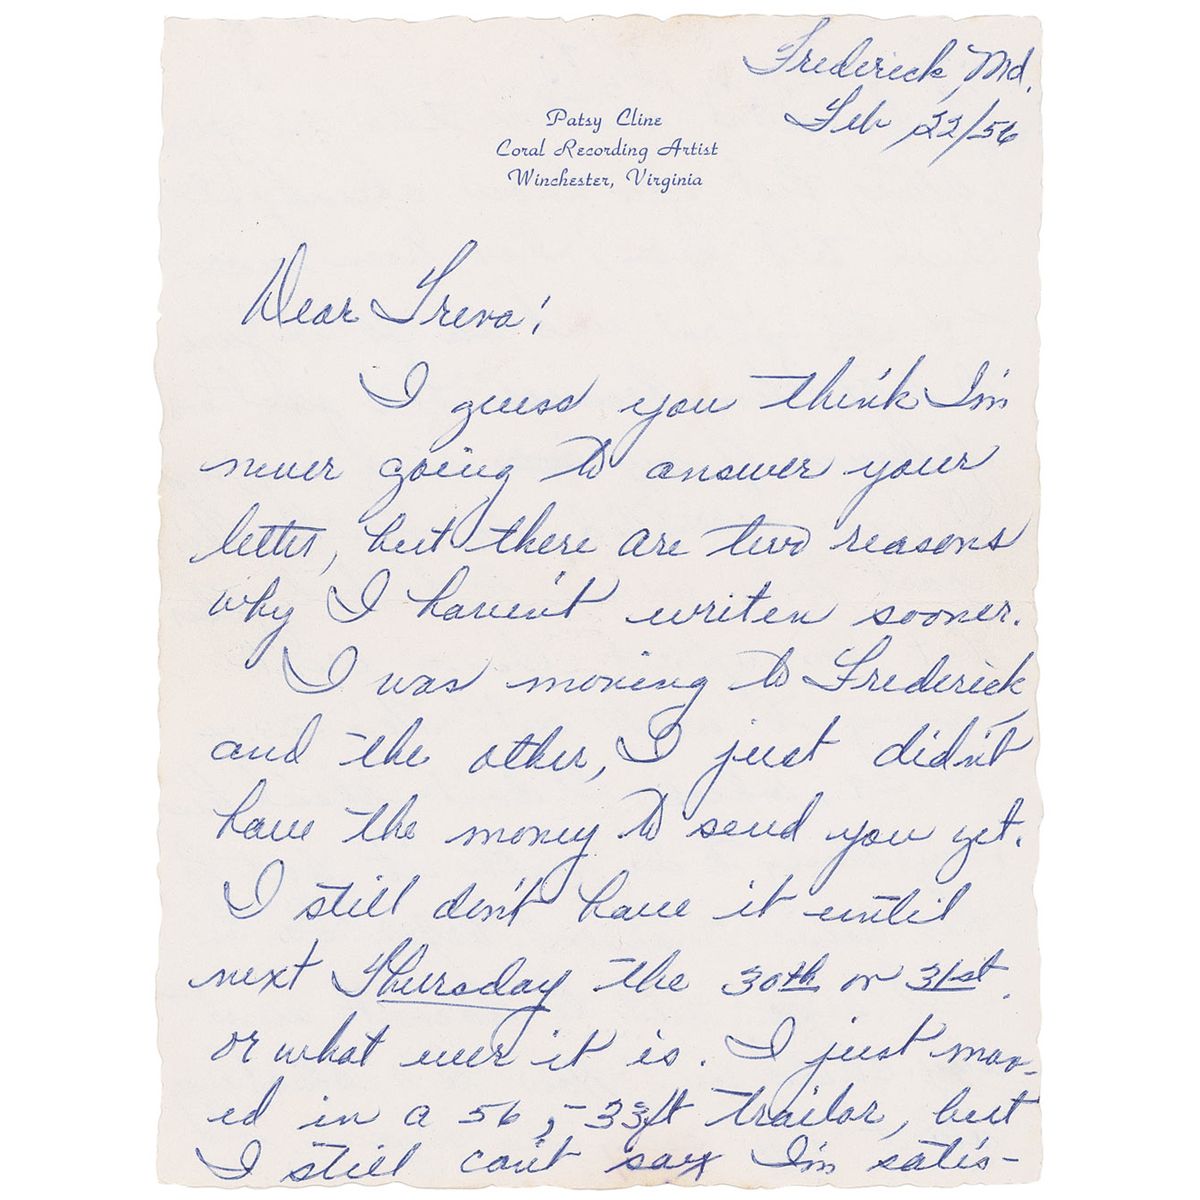 Frederick, Md.
Feb 22/56
Patsy Cline
Coral Recording Artist
Winchester, Virginia
Dear Treva:
I guess you think I'm
never going to answer your
letter, but there are two reasons
why I haven't writen sooner.
I was moving to Frederick
and the other, I just didn't
have the money to send you yet.
I still don't have it until
next Thursday the 30th or 31st.
or what ever it is. I just mov-
ed in a 56, - 33ft trailor, but
I still can't say I'm satis-